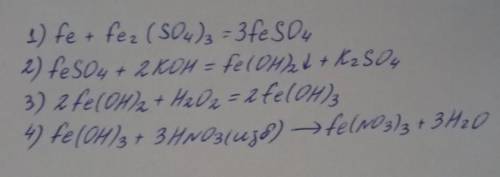 1) fe + fe₂(SO₄)₃ = 3feSO₄
2) feSO₄ + 2KOH = fe(OH)₂↓ + K₂SO₄
3) 2fe(OH)₂ + H₂O₂ = 2fe(OH)₃
4) fe(OH)₃ + 3HNO₃(изб) → fe(NO₃)₃ + 3H₂O